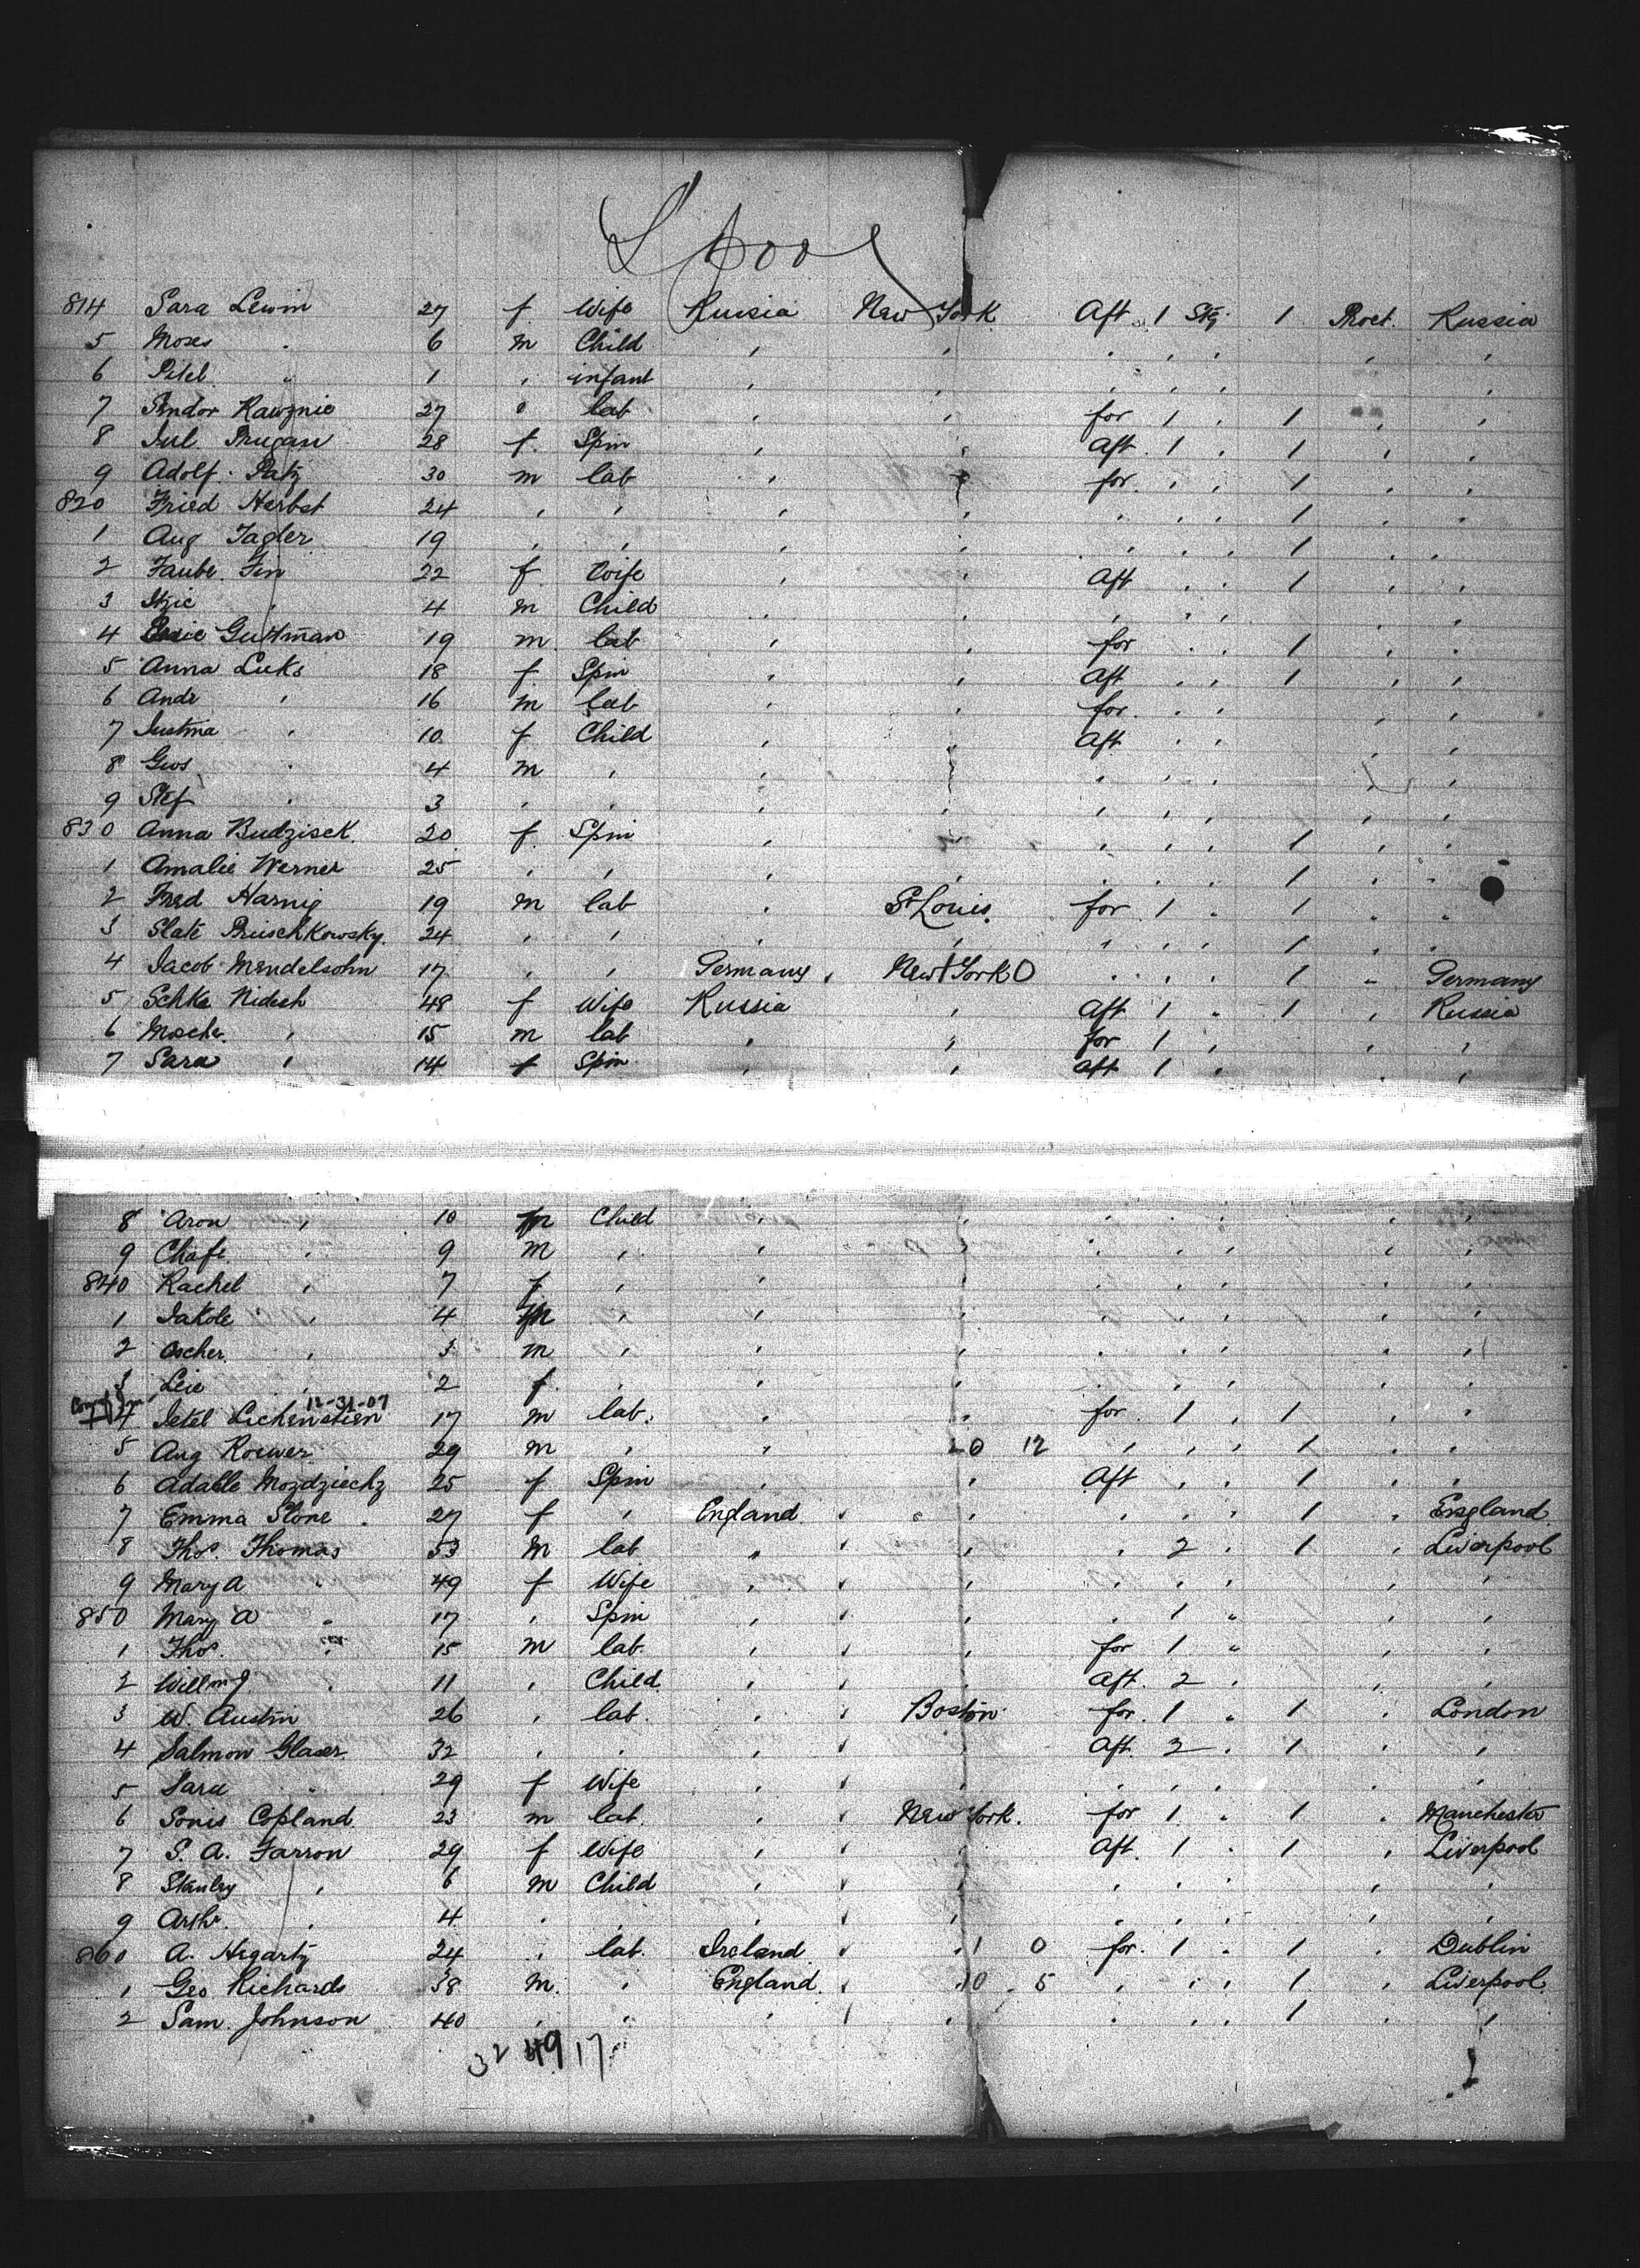 L'pool
814 Sara Lewin 27 f. Wife Russia New York Aft. 1 Stg. 1 Prot. Russia
5 Moses " 6 m Child " " " " " " "
6 " 1 " infant " " " " " " "
7 27 " lab " " for 1 " 1 " "
8 28 f. Spin " " Aft. 1 " 1 " "
9 Adolf Patz 30 m lab " " for. " " 1 " "
820 Fried Herbst 24 " " " " " " " 1 " "
1 Aug Tagler 19 " " " " " " " 1 " "
2 Taube Fin 22 f Wife " " Aft " " 1 " "
3 Itzic " 4 m Child " " " " " " "
4 Guttman 19 m. lab " " for " " 1 " "
5 Anna Luks 18 f Spin " " Aft " " 1 " "
6 Andr " 16 m lab " " for. " " " "
7 Justina " 10. f Child " " Aft " " " "
8 " 4 m " " " " " " "
9 Stef " 3 " " " " " " " " "
830 Anna Budziseck. 20. f. Spin " " " " " 1 " "
1 Amalie Werner 25 " " " " " " " 1 " "
2 Fred Harnig 19 m lab " St Louis. for 1 " 1 " "
3 Slate Pruschkowsky. 24 " " " " " " " 1 " "
4 Jacob Mendelsohn 17 " " Germany " New York 0 " " " 1 " Germany
5 Schke Nidesh 48 f Wife Russia " Aft 1 " 1 " Russia
6 Mosche " 15 m lab " " for 1 " " "
7 Sara " 14 f Spin " " aft 1 " " "
8 Aron " 10 m Child " " " " " " "
9 Chafe " 9 m " " " " " " " "
840 Rachel " 7 f " " " " " " " "
1 Jakole " 4 m " " " " " " " "
2 Ascher " 3 m " " " " " " " "
3 Leie " 2 f. " " " " " " " "
12-31-07
4 Ietel Lichenstien 17 m lab. " " for. 1 " 1 " "
5 Aug Roewer 29 m " " 0 12 " " " 1 " "
6 Adalle Mozdziechz 25 f Spin " " Aft " " 1 " "
7 Emma Slone. 27 f " England. " " " " " 1 " England.
8 Thos. Thomas 53 m lab " " " 2 " 1 " Liverpool
9 Mary A " 49 f Wife " " " " " " "
850 Mary A " 17 " Spin " " " 1 " " "
1 Thos. " 15 m lab. " " for 1 " " "
2 Willm J " 11 " Child. " " aft. 2 " " "
3 W. Austin 26 " lab. " Boston for. 1 " 1 " London
4 Salmon Glaser 32 " " " " Aft. 2 " 1 " "
5 Sara " 29 f Wife " " " " " " "
6 Sonis Copland. 23 m lab. " New York. for 1 " 1 " Manchester
7 S. A. Farron 29 f Wife " " Aft. 1 " 1 " Liverpool
8 Stanley " 6 m Child " " " " " " "
9 Arthr. " 4. " " " " " " " " "
860 A. Hegarty 24 " lab. Ireland " 1 0 for. 1 " 1 " Dublin
1 Geo Richards 38 m. " England. " 10 5 " " " 1 " Liverpool.
2 Sam. Johnson 40 " " " " " " " 1 " "
32 49 17